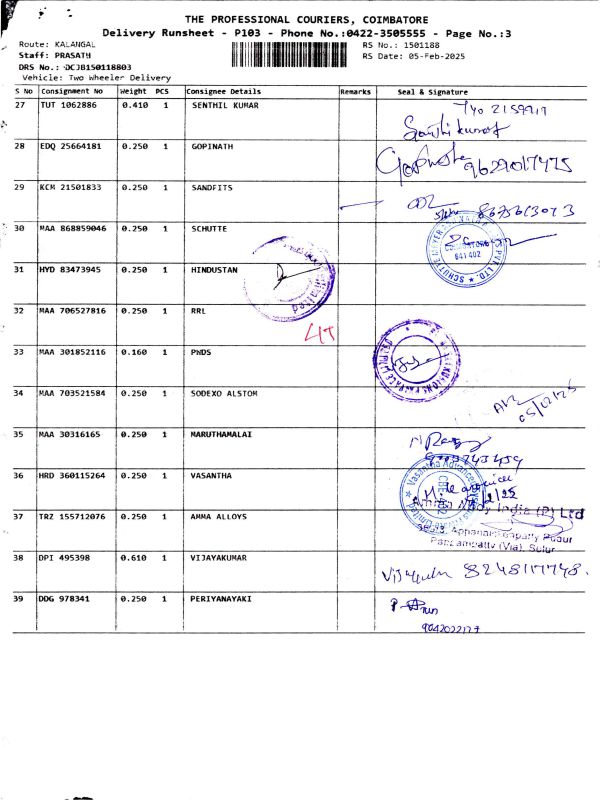 THE PROFESSIONAL COURIERS, COIMBATORE
Delivery Runsheet - P103 - Phone No.:0422-3505555 - Page No.:3
Route: KALANGAL
RS No.: 1501188
Staff: PRASATH
RS Date: 05-Feb-2025
DRS No.: DCJB150118803
Vehicle: Two Wheeler Delivery
S No Consignment No Weight PCS Consignee Details Remarks Seal & Signature
27 TUT 1062886 0.410 1 SENTHIL KUMAR
Senthil kumar
28 EDQ 25664181 0.250 1 GOPINATH
Gopinath 9629017475
29 KCM 21501833 0.250 1 SANDFITS
8675613073
30 MAA 868859046 0.250 1 SCHUTTE
641 402
31 HYD 83473945 0.250 1 HINDUSTAN
32 MAA 706527816 0.250 1 RRL
33 MAA 301852116 0.160 1 PNDS
34 MAA 703521584 0.250 1 SODEXO ALSTOM
05/02/25
35 MAA 30316165 0.250 1 MARUTHAMALAI
36 HRD 360115264 0.250 1 VASANTHA
Vasantha Advanced
CBE-402
37 TRZ 155712076 0.250 1 AMMA ALLOYS
India (P) Ltd
Pappampatty (Via), Sulur
38 DPI 495398 0.610 1 VIJAYAKUMAR
8248117748.
39 DDG 978341 0.250 1 PERIYANAYAKI
9042022177